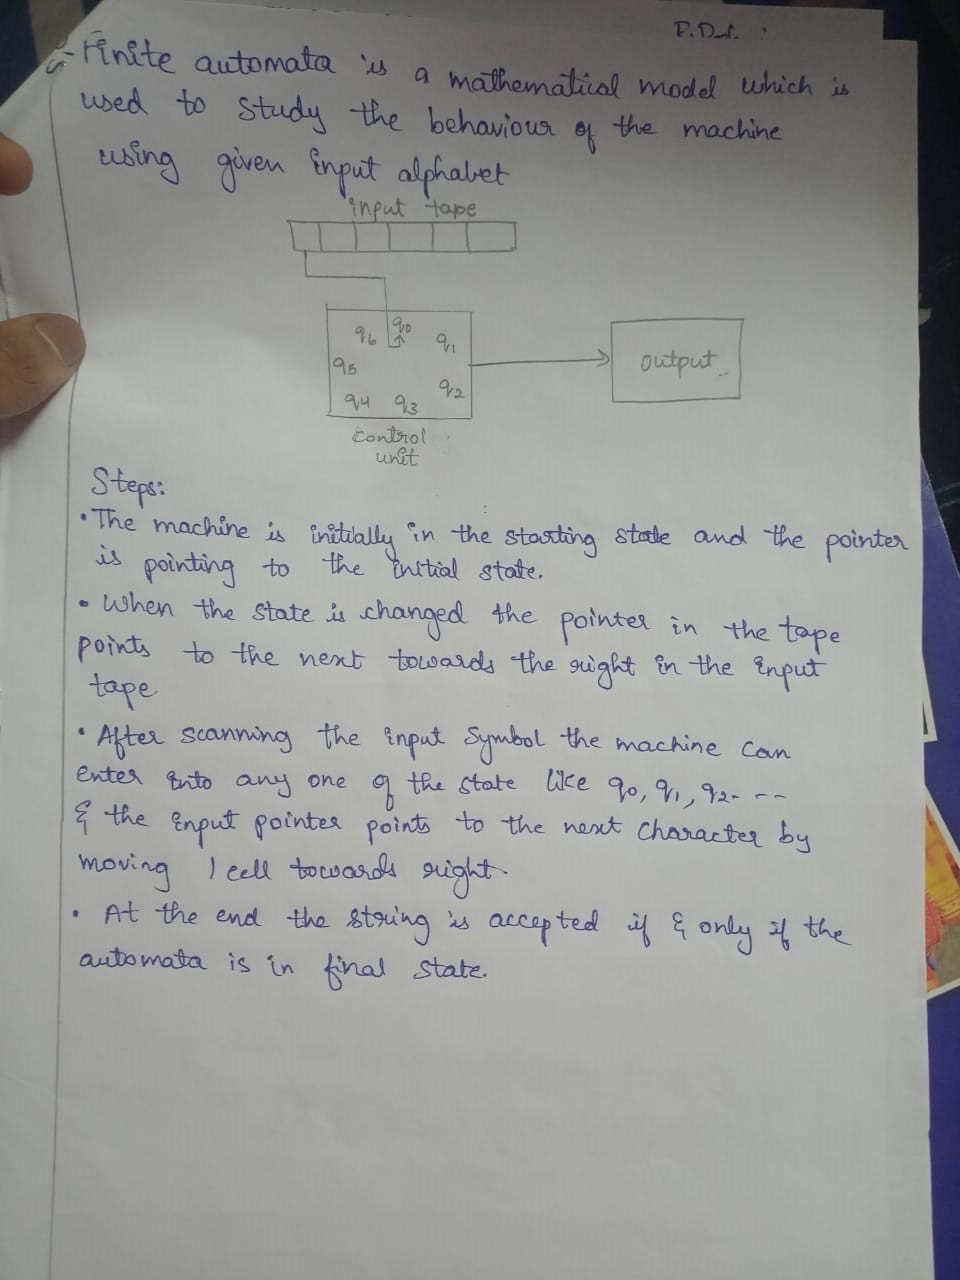 Finite automata is a mathematical model which is
used to study the behaviour of the machine
using given input alphabet
input tape
q6 q0 q1
q5
q4 q3 q2
output
control
unit
Steps:
• The machine is initially in the starting state and the pointer
is pointing to the initial state.
• When the state is changed the pointer in the tape
points to the next towards the right in the input
tape.
• After scanning the input symbol the machine can
enter into any one of the state like q0, q1, q2- --
& the input pointer points to the next character by
moving 1 cell towards right.
• At the end the string is accepted if & only if the
automata is in final state.